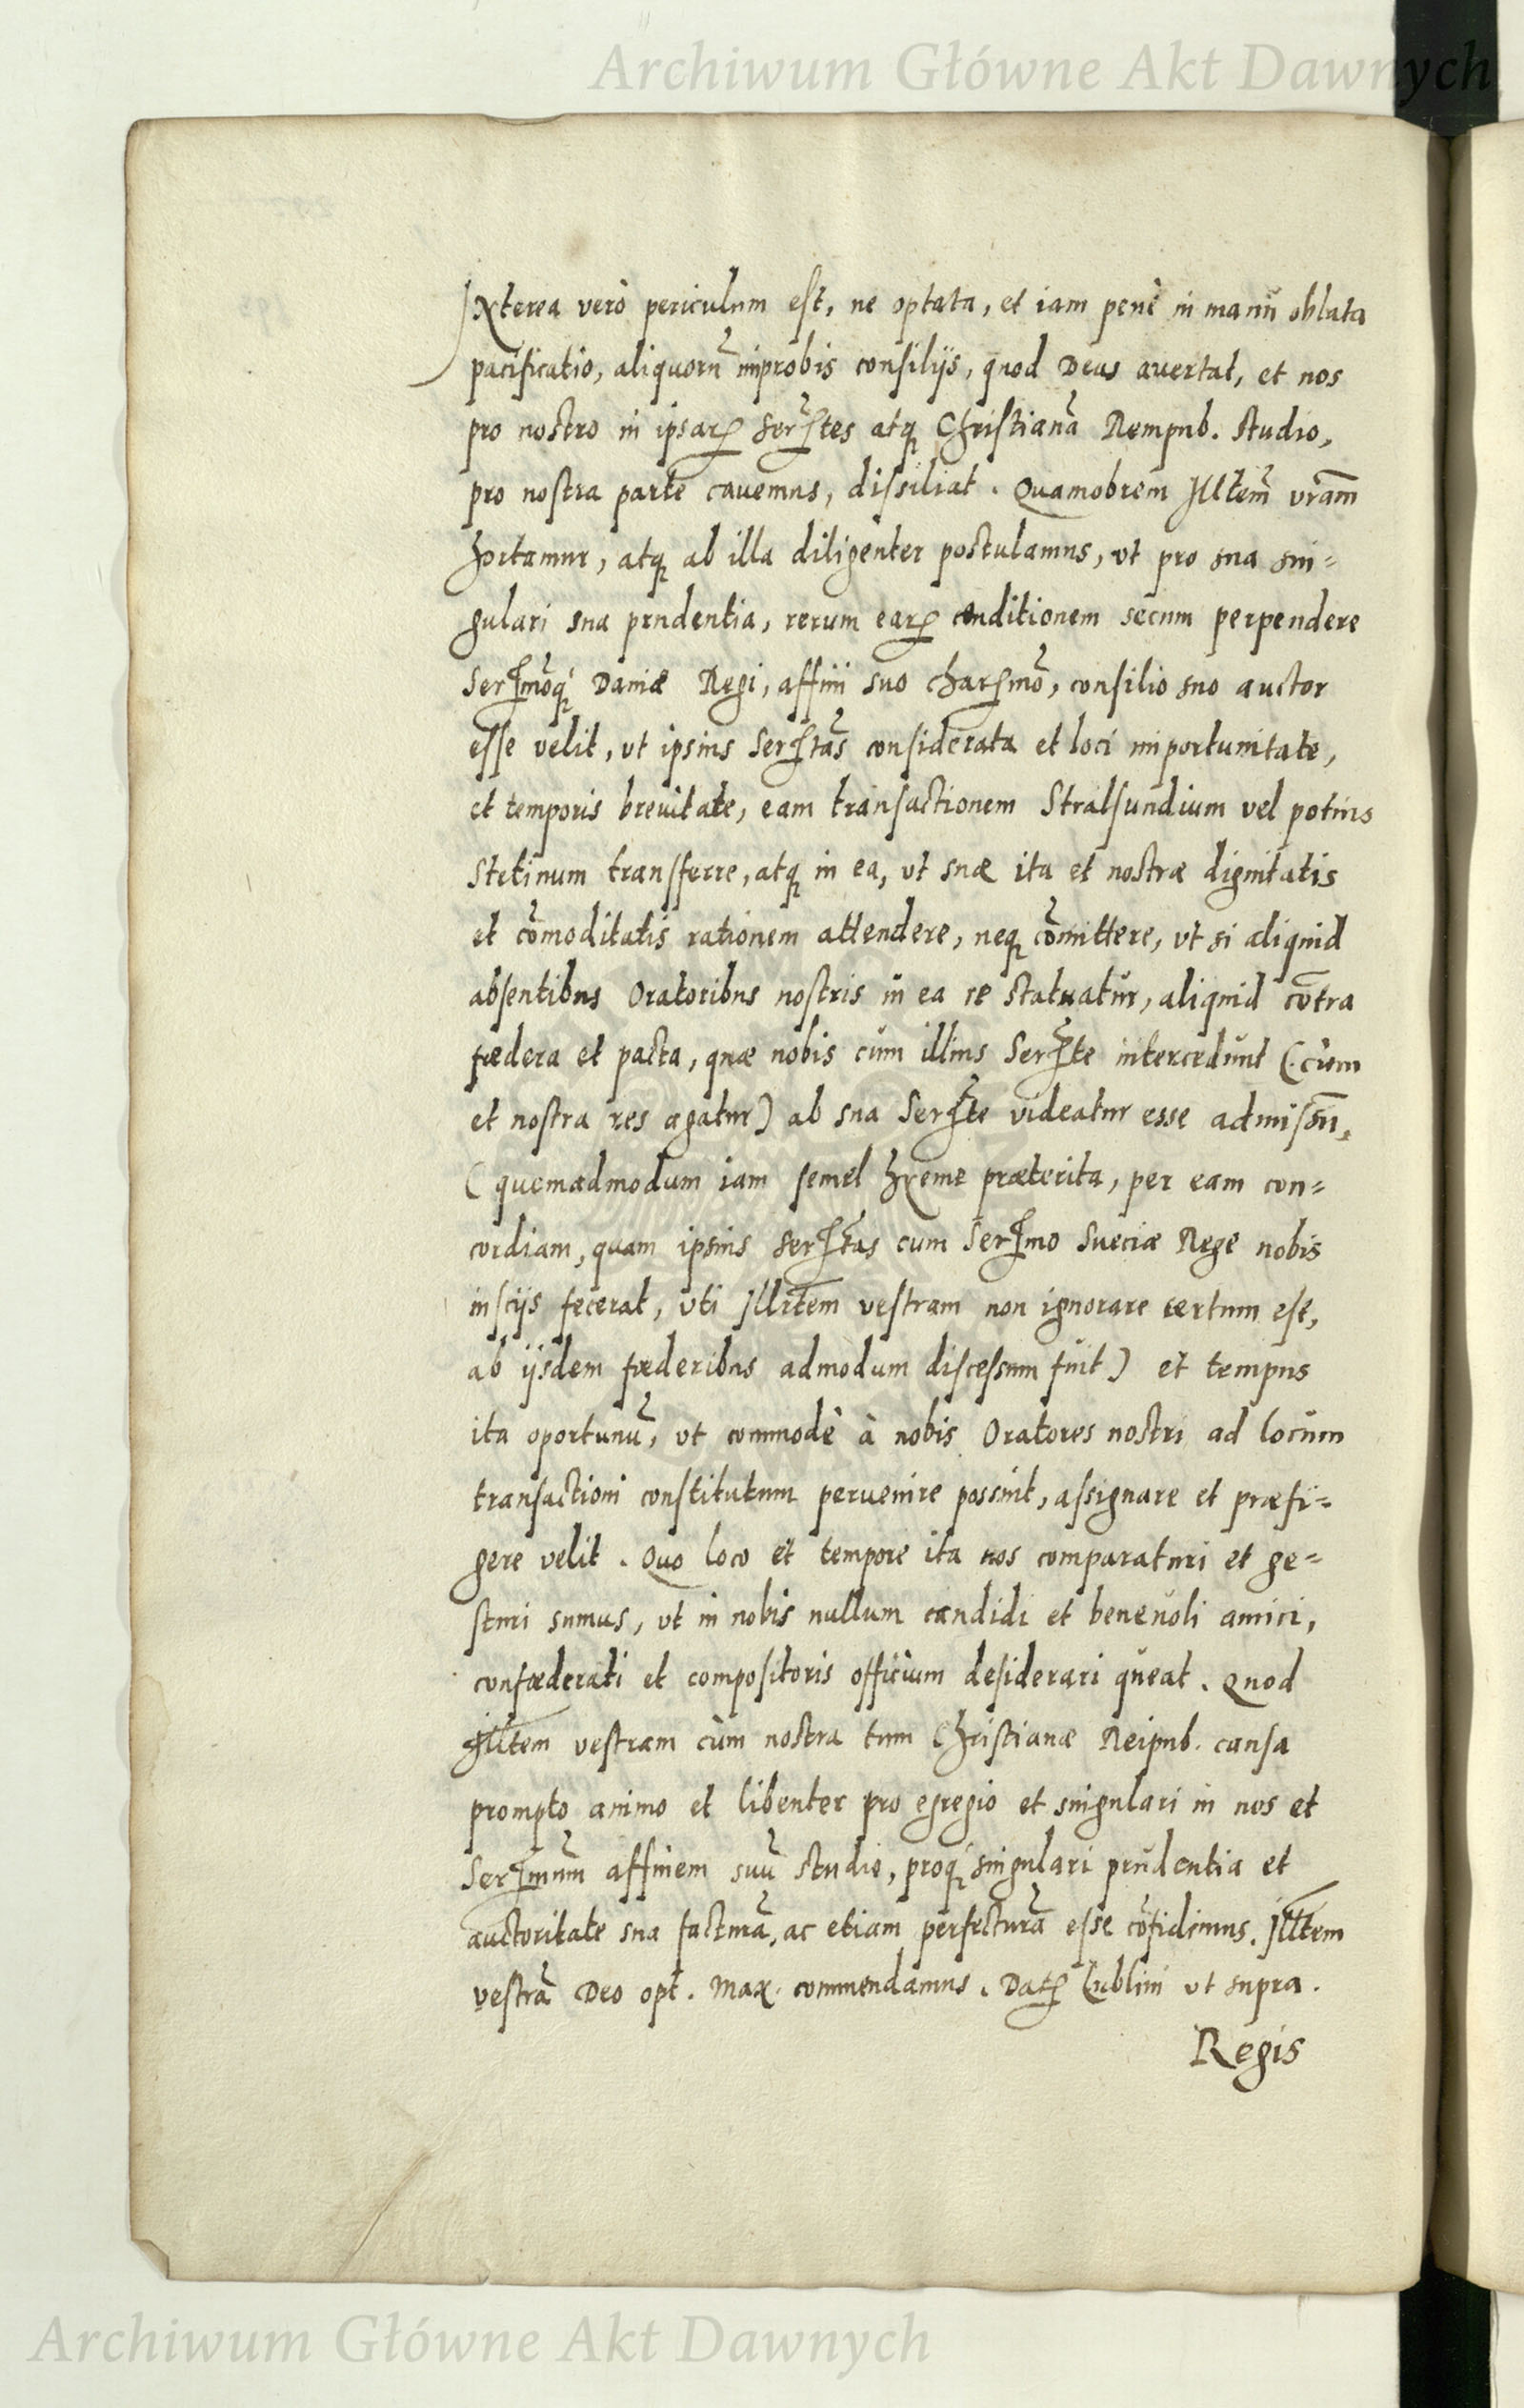 Archiwum Główne Akt Dawnych
Jxterea verò periculum est, ne optata, et iam penè in manū oblata
pacificatio, aliquorū improbis consilijs, quod Deus auertat, et nos
pro nostro in ipsarꝝ Serᵗtes atqꝫ Christianā Rempub. studio,
pro nostra parte cauemus, dissiliat. Quamobrem Jlltem̄ vram̄
hortamur, atqꝫ ab illa diligenter postulamus, vt pro sua sin=
gulari sua prudentia, rerum earꝝ conditionem secum perpendere
Serᵐōqꝫ Daniæ Regi, affini suo charsmō, consilio suo auctor
esse velit, vt ipsius Serᵗas considerata et loci importunitate,
et temporis breuitate, eam transactionem Stralsundium vel potius
Stetinum transferre, atqꝫ in ea, vt suæ ita et nostræ dignitatis
et cōmoditatis rationem attendere, neqꝫ cōmittere, vt si aliquid
absentibus Oratoribus nostris in ea re statuatur, aliquid cōtra
fœdera et pacta, quæ nobis cùm illius Serᵗte intercedunt (cùm
et nostra res agatur) ab sua Serᵗte videatur esse admissū,
(quemadmodum iam semel hyeme præterita, per eam con=
cordiam, quam ipsius Serᵗas cum Serᵐo Sueciæ Rege nobis
inscijs fecerat, vti Jllrtem vestram non ignorare certum est,
ab ijsdem fœderibus admodum discessum fuit) et tempus
ita oportunū, vt commodè à nobis Oratores nostri ad locum
transactioni constitutum peruenire possint, assignare et præfi=
gere velit. Quo loco et tempore ita nos comparaturi et ge=
sturi sumus, vt in nobis nullum candidi et beneuoli amici,
confœderati et compositoris officium desiderari queat. Quod
Jlltem vestram cùm nostra tum Christianæ Reipub. causa
prompto animo et libenter pro egregio et singulari in nos et
Serᵐum affinem suū studio, proqꝫ singulari prudentia et
auctoritate sua facturā, ac etiam perfecturā esse cōfidimus. Jlltem
vestrā Deo opt. Max. commendamus. Datꝝ Lublini vt supra.
Regis
Archiwum Główne Akt Dawnych